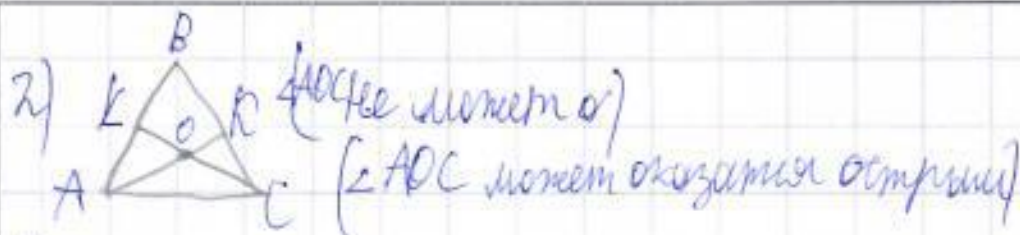 B
2) L O K (∠AOC не может о)
A C (∠AOC может оказатся острым)